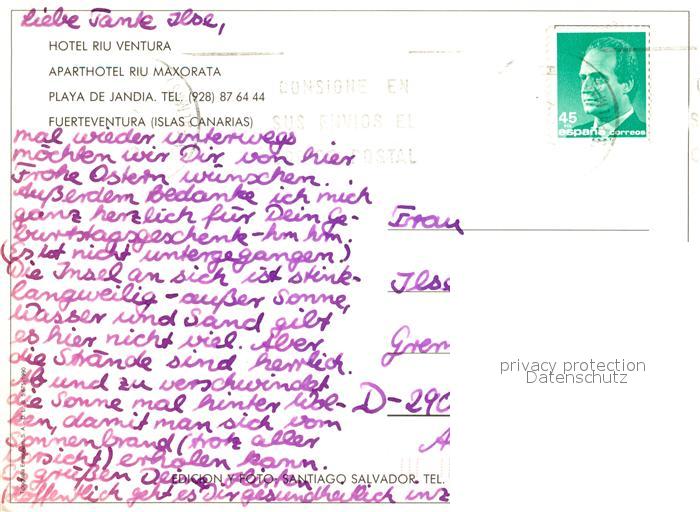 Liebe Tante Ilse,
HOTEL RIU VENTURA
APARTHOTEL RIU MAXORATA
PLAYA DE JANDIA. TEL. (928) 87 64 44
FUERTEVENTURA (ISLAS CANARIAS)
CONSIGNE EN
SUS ENVIOS EL
POSTAL
45
españa correos
mal wieder unterwegs
möchten wir Dir von hier
Frohe Ostern wünschen.
Außerdem bedanke ich mich
ganz herzlich für Dein Ge-
burtstagsgeschenk-hm hm.
(Es ist nicht untergegangen!)
Die Insel an sich ist stink-
langweilig - außer Sonne,
Wasser und Sand gibt
es hier nicht viel. Aber
die Strände sind herrlich.
Ab und zu verschwindet
die Sonne mal hinter Wol-
ken, damit man sich vom
Sonnenbrand (trotz aller
Vorsicht) erholen kann.
Es grüßen Dich
Hoffentlich geht es Dir gesundheitlich
EDICION Y FOTO: SANTIAGO SALVADOR. TEL.
Frau
Ilse
D-290
privacy protection
Datenschutz